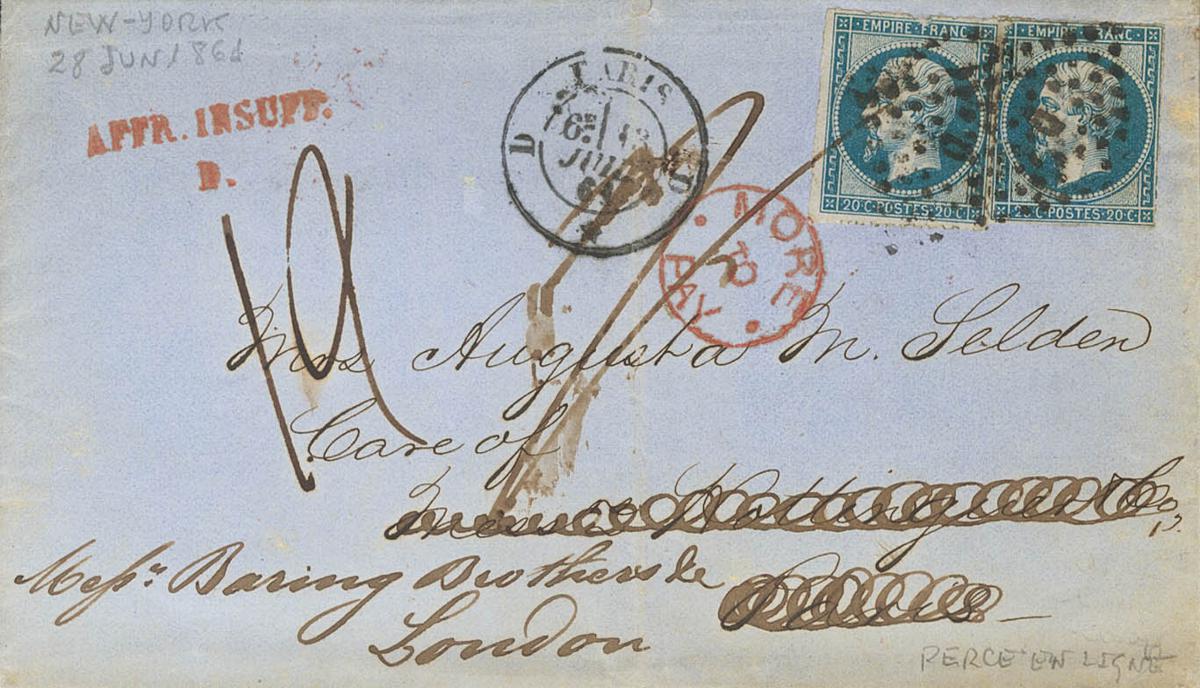 NEW-YORK
28 JUN 1861
AFFR. INSUFF.
D.
PARIS
D
MORE
TO
PAY
EMPIRE FRANC
20 C POSTES 20 C
EMPIRE FRANC
20 C POSTES 20 C
Mrs Augusta M. Selden
Care of
Hottinguer & Co.
Messrs Baring Brothers &c
Paris
London
PERCE EN LIGNE